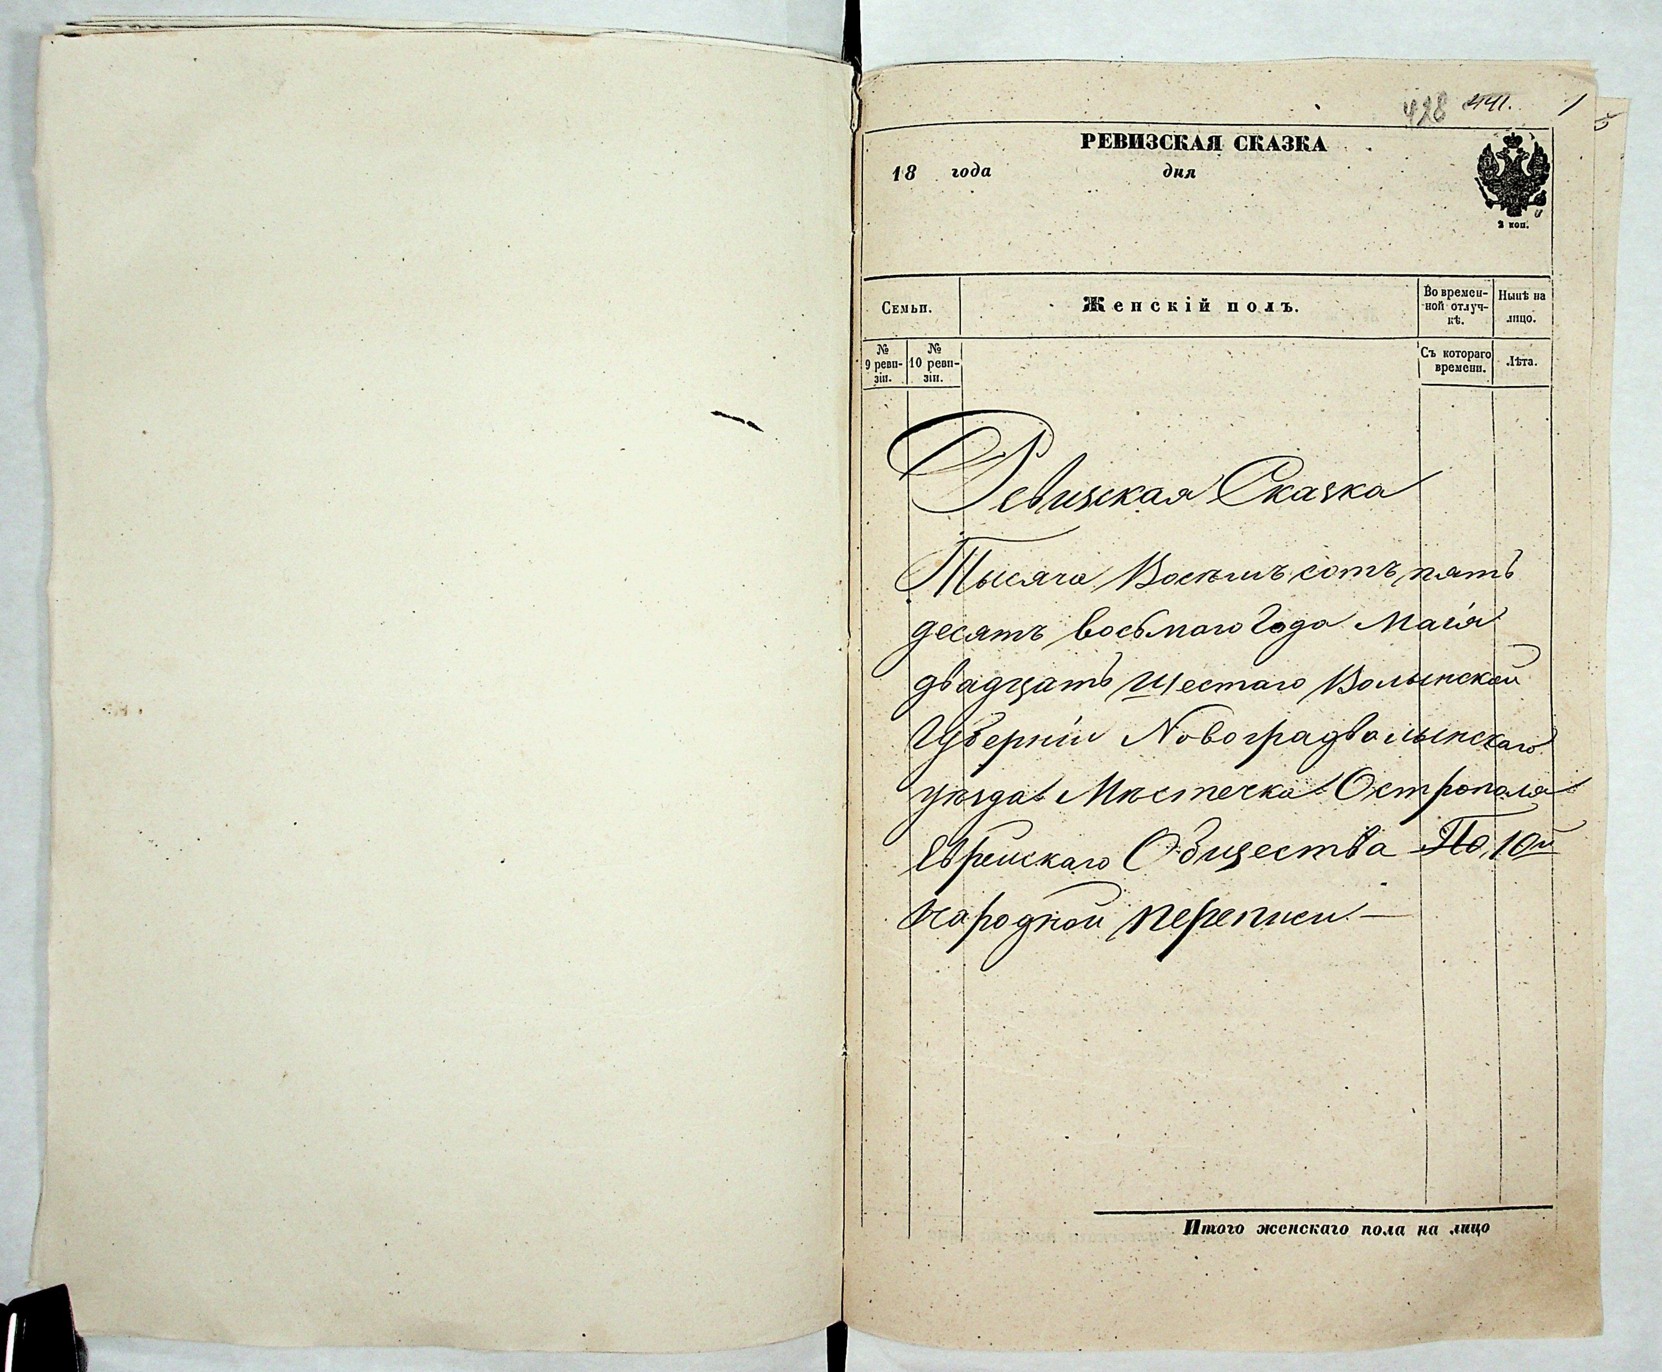 428 441. 1
РЕВИЗСКАЯ СКАЗКА
18 года дня
2 коп.
Семьи.
Женскій полъ.
Во времен-
ной отлуч-
кѣ.
Нынѣ на
лицо.
№
9 реви-
зіи.
№
10 реви-
зіи.
Съ котораго
времени.
Лѣта.
Ревизская Сказка
Тысяча Восѣмъ сотъ пятъ
десятъ восьмаго Года Маія
двадцать шестаго Волынской
Губерніи Новоградволынскаго
уѣзда Мѣстечка Острополя
Еврейскаго Общества По 10й
народной переписи —
Итого женскаго пола на лицо